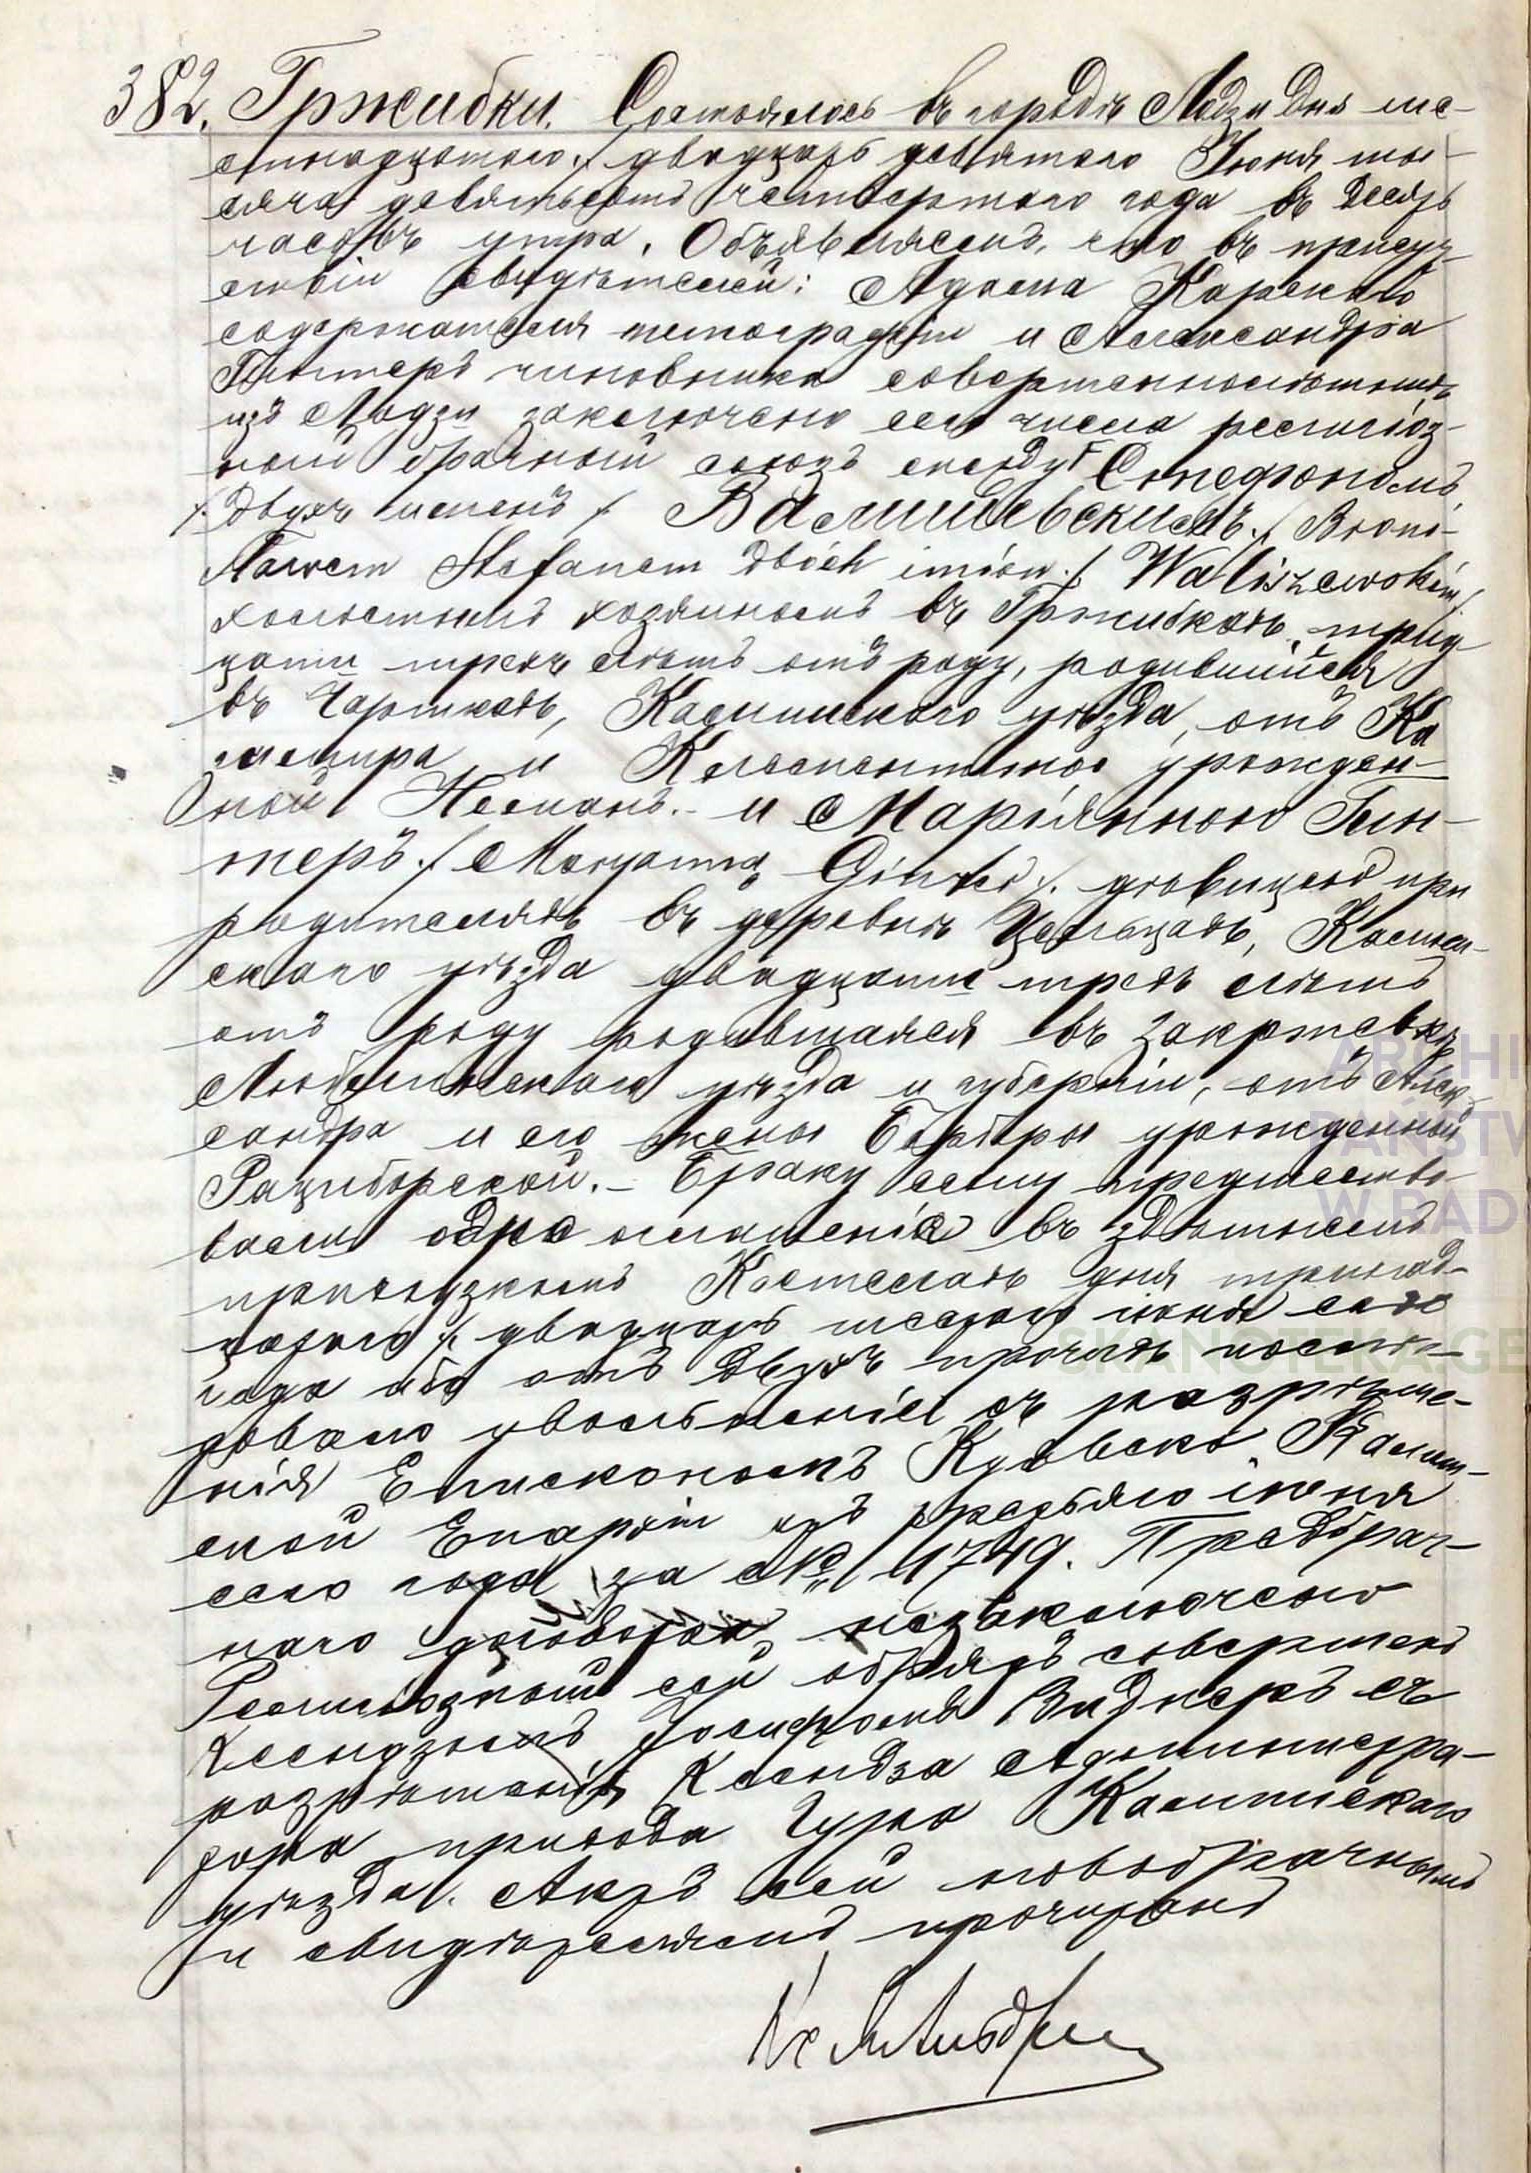 382. Гржибки. Состоялось въ городѣ Лодзи Дня ше-
стнадцатого ./ двадцать девятого Іюня ты-
сяча девятьсотъ четвертого года въ Десять
часовъ утра. Объявляемъ, что въ присут-
ствіи свидѣтелей: Адама Карскаго
содержателя типографіи и Александра
чиновника совершеннолѣтнихъ
изъ Лодзи заключено сего числа религіоз-
ный брачный союзъ между Стефаномъ
/. Двухъ именъ ./ Валишевскимъ ./ Broni-
sławem Stefanem dwóch imion ./ Waliszewskim /.
холостымъ хозяиномъ въ Гржибкахъ, трид-
цати трехъ лѣтъ отъ роду, родившійся
въ Чарткахъ, Калишскаго уѣзда, отъ Ка
зимира и Клементины урожден-
ной Неманъ. - и Маріянною Гин-
теръ ./ Maryanną Ginter ./. дѣвицею при
родителяхъ въ деревнѣ Цельцахъ, Калиш-
скаго уѣзда двадцати трехъ лѣтъ
отъ роду родившаяся въ Закржевку
Люблинскаго уѣзда и губерніи, отъ Алек-
сандра и его жены Барбары урожденной
Рациборской. - Браку сему предшество-
вали одно оглашеніе въ здѣшнемъ
приходскомъ Костелахъ дня тринад-
цатого ./ двадцать шестого іюня сего
года ибо отъ двухъ прочихъ послѣ-
довало увольненіе съ разрѣше-
нія Епископомъ Куявско Калиш-
ской Епархіи изъ третьяго іюня
сего года за № 1749. Предбрач-
наго договора незаключено
Религіозный сей обрядъ совершенъ
Ксендзомъ Іосифомъ Виднеръ съ
разрѣшенія Ксендза Администра-
тора прихода Гура Калишскаго
уѣзда. Актъ сей новобрачнымъ
и свидѣтелямъ прочитанъ
ARCHI
PAŃSTW
W RAD
SKANOTEKA.GE